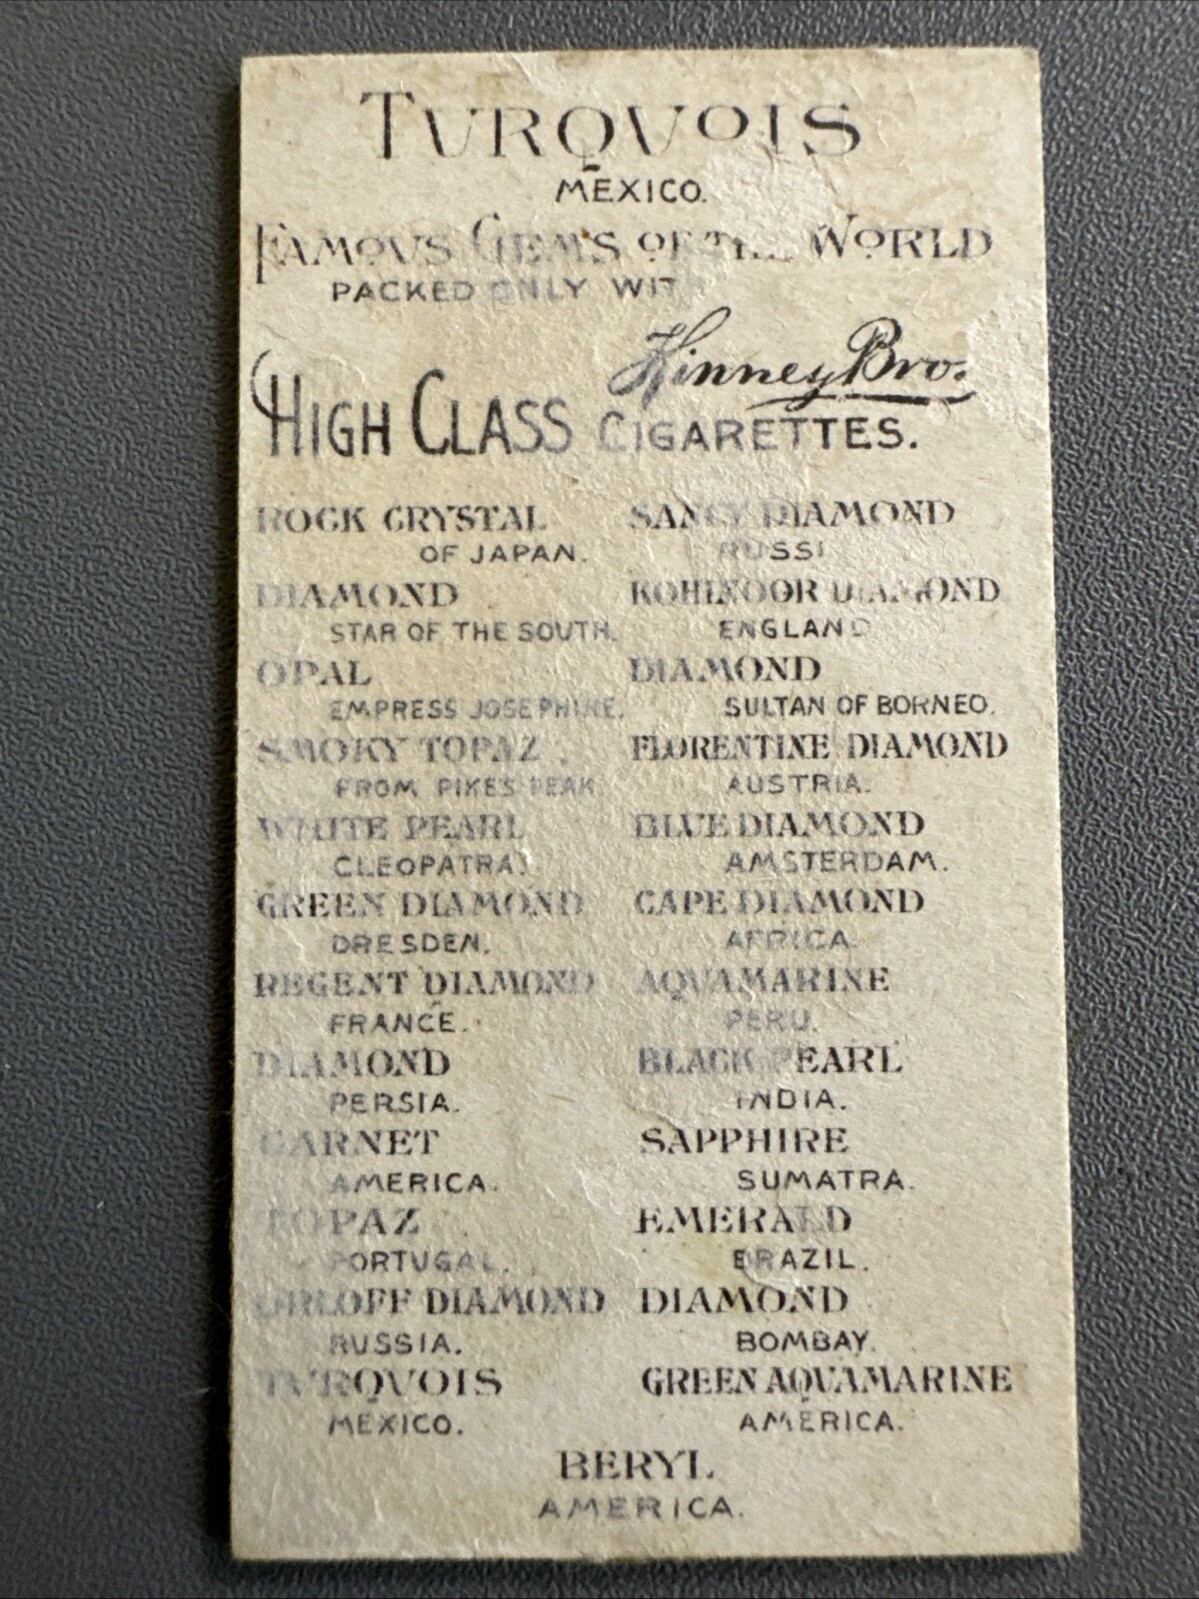 TURQUOIS
MEXICO.
FAMOUS GEMS OF THE WORLD
PACKED ONLY WITH
Kinney Bro.
HIGH CLASS CIGARETTES.
ROCK CRYSTAL
OF JAPAN.
DIAMOND
STAR OF THE SOUTH.
OPAL
EMPRESS JOSEPHINE.
SMOKY TOPAZ
FROM PIKE'S PEAK.
WHITE PEARL
CLEOPATRA.
GREEN DIAMOND
DRESDEN.
REGENT DIAMOND
FRANCE.
DIAMOND
PERSIA.
GARNET
AMERICA.
TOPAZ
PORTUGAL.
ORLOFF DIAMOND
RUSSIA.
TURQUOIS
MEXICO.
SANCY DIAMOND
RUSSI
KOHINOOR DIAMOND
ENGLAND
DIAMOND
SULTAN OF BORNEO.
FLORENTINE DIAMOND
AUSTRIA.
BLUE DIAMOND
AMSTERDAM.
CAPE DIAMOND
AFRICA.
AQUAMARINE
PERU.
BLACK PEARL
INDIA.
SAPPHIRE
SUMATRA.
EMERALD
BRAZIL.
DIAMOND
BOMBAY.
GREEN AQUAMARINE
AMERICA.
BERYL
AMERICA.